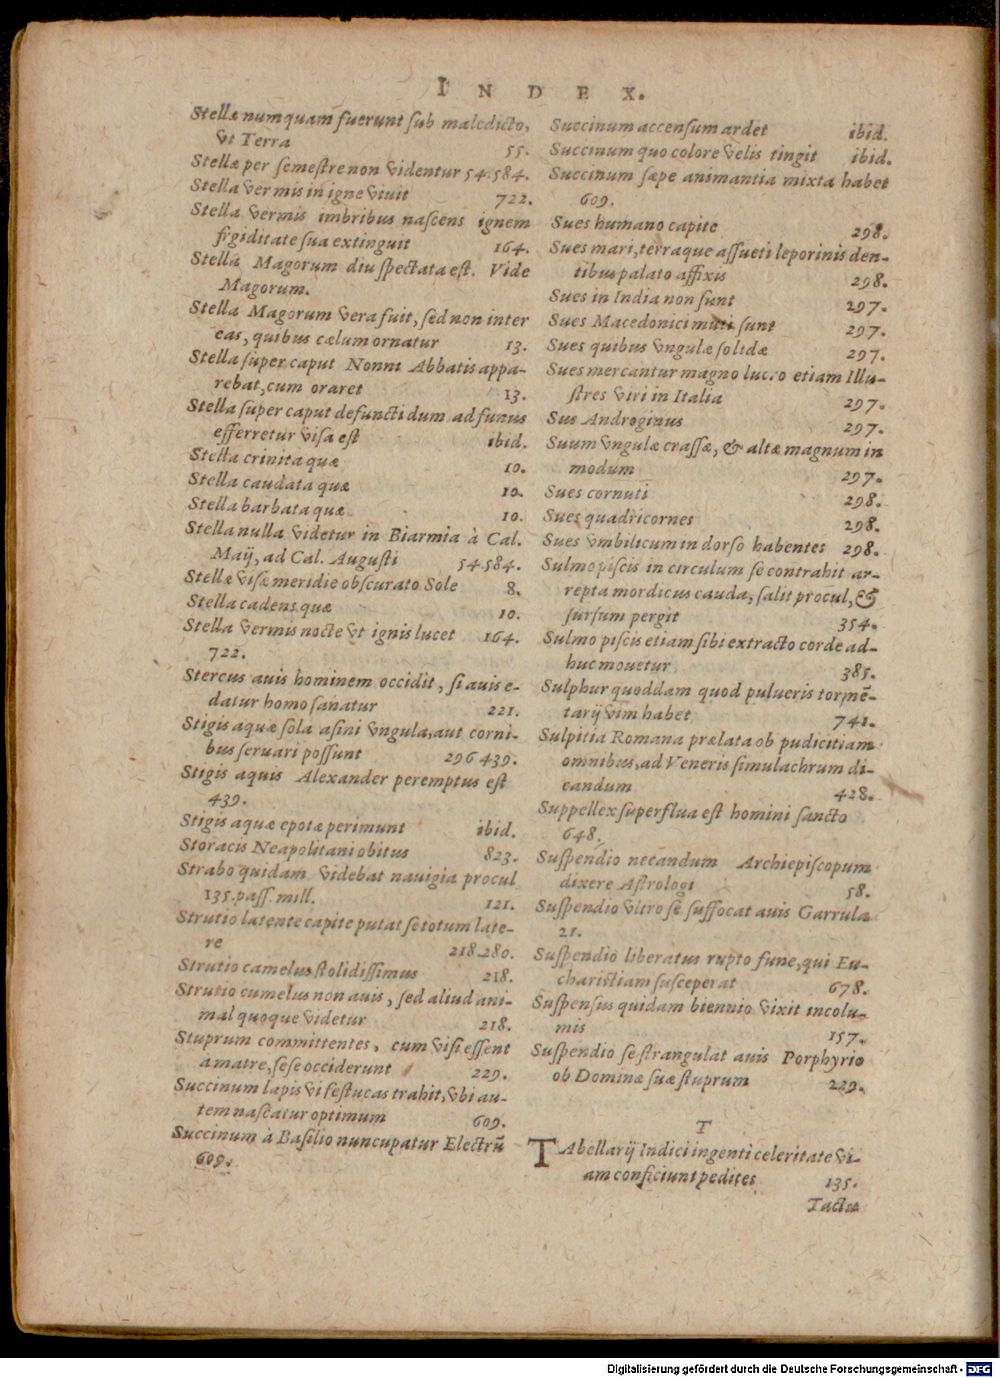 INDEX.
Stellæ numquam fuerunt ſub maledicto,
vt Terra 55.
Stellæ per ſemeſtre non videntur 54.584.
Stella vermis in igne viuit 722.
Stella vermis imbribus naſcens ignem
frigiditate ſua extinguit 164.
Stella Magorum diu ſpectata eſt. Vide
Magorum.
Stella Magorum vera fuit, ſed non inter
eas, quibus cælum ornatur 13.
Stella ſuper caput Nonni Abbatis appa-
rebat, cum oraret 13.
Stella ſuper caput defuncti dum ad funus
efferretur viſa eſt ibid.
Stella crinita quæ 10.
Stella caudata quæ 10.
Stella barbata quæ 10.
Stella nulla videtur in Biarmia à Cal.
Maij, ad Cal. Auguſti 54.584.
Stellæ viſæ meridie obſcurato Sole 8.
Stella cadens quæ 10.
Stella vermis nocte vt ignis lucet 164.
722.
Stercus auis hominem occidit, ſi auis e-
datur homo ſanatur 221.
Stigis aquæ ſola aſini vngula, aut corni-
bus ſeruari poſſunt 296 439.
Stigis aquis Alexander peremptus eſt
439.
Stigis aquæ epotæ perimunt ibid.
Storacis Neapolitani obitus 823.
Strabo quidam videbat nauigia procul
135. paſſ. mill. 121.
Strutio latente capite putat ſe totum late-
re 218.280.
Strutio camelus ſtolidiſſimus 218.
Strutio cumelus non auis, ſed aliud ani-
mal quoque videtur 218.
Stuprum committentes, cum viſi eſſent
a matre, ſeſe occiderunt 229.
Succinum lapis vi feſtucas trahit, vbi au-
tem naſcatur optimum 609.
Succinum à Baſilio nuncupatur Electrũ
609.
Succinum accenſum ardet ibid.
Succinum quo colore velis tingit ibid.
Succinum ſæpe animantia mixta habet
609.
Sues humano capite 298.
Sues mari, terraque aſſueti leporinis den-
tibus palato affixis 298.
Sues in India non ſunt 297.
Sues Macedonici muti ſunt 297.
Sues quibus vngulæ ſolidæ 297.
Sues mercantur magno lucro etiam Illu-
ſtres viri in Italia 297.
Sus Androginus 297.
Suum vngulæ craſſæ, & altæ magnum in
modum 297.
Sues cornuti 298.
Sues quadricornes 298.
Sues vmbilicum in dorſo habentes 298.
Sulmo piſcis in circulum ſe contrahit ar-
repta mordicus cauda, ſalit procul, &
ſurſum pergit 354.
Sulmo piſcis etiam ſibi extracto corde ad-
huc mouetur 385.
Sulphur quoddam quod pulueris tormẽ-
tarij vim habet 741.
Sulpitia Romana prælata ob pudicitiam
omnibus, ad Veneris ſimulachrum di-
candum 428.
Suppellex ſuperflua eſt homini ſancto
648.
Suſpendio necandum Archiepiſcopum
dixere Aſtrologi 58.
Suſpendio vltro ſe ſuffocat auis Garrula
21.
Suſpendio liberatus rupto fune, qui Eu-
chariſtiam ſuſceperat 678.
Suſpenſus quidam biennio vixit incolu-
mis 157.
Suſpendio ſe ſtrangulat auis Porphyrio
ob Dominæ ſuæ ſtuprum 229.
T
TAbellarij Indici ingenti celeritate vi-
am conficiunt pedites 135.
Tactu
Digitalisierung gefördert durch die Deutsche Forschungsgemeinschaft - DFG